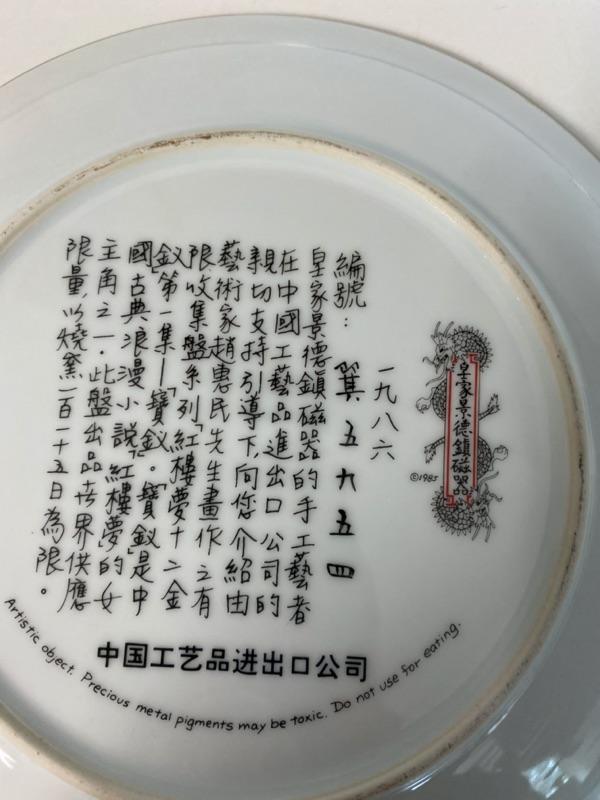 皇家景德鎮磁器
©1985
一九八六
編號： 五九五四
皇家景德鎮磁器的手工藝者
在中國工藝品進出口公司的
親切支持引導下,向您介紹由
藝術家趙惠民先生畫作之有
限收集盤系列「紅樓夢十二金
釵」第一集—「寶釵」。「寶釵」是中
國古典浪漫小說「紅樓夢」的女
主角之一．此盤出品世界供應
限量,以燒窯一百一十五日為限。
中国工艺品进出口公司
Artistic object. Precious metal pigments may be toxic. Do not use for eating.